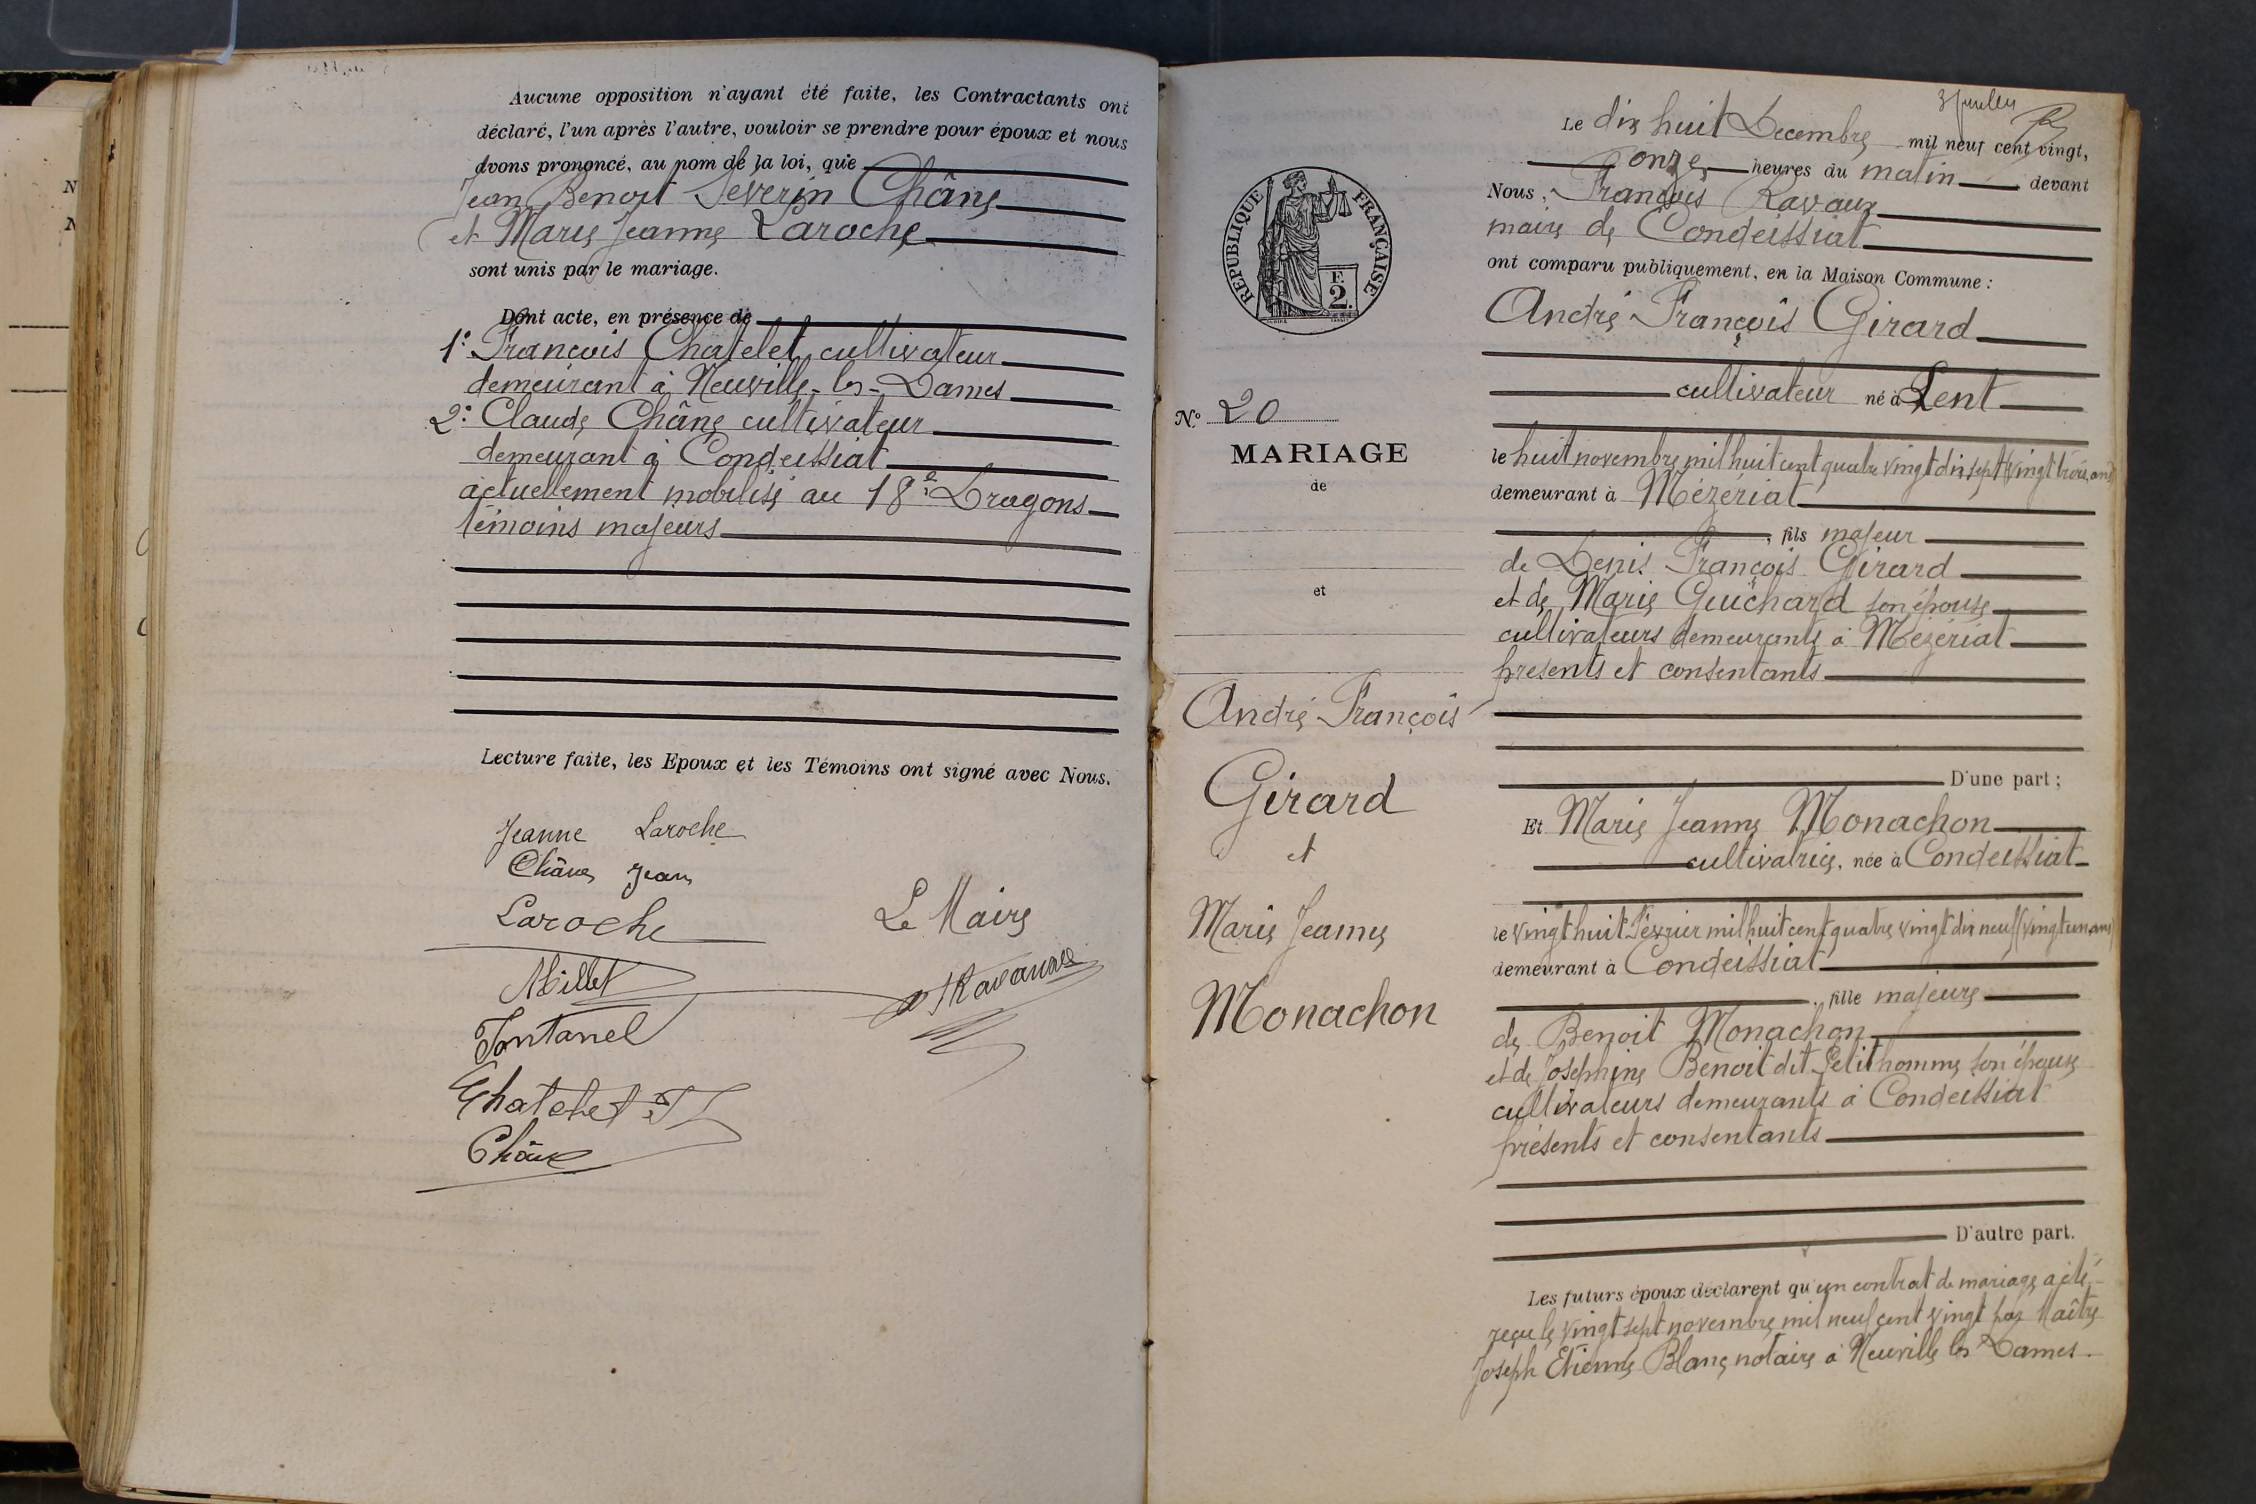 Aucune opposition n'ayant été faite, les Contractants ont
déclaré, l'un après l'autre, vouloir se prendre pour époux et nous
avons prononcé, au nom de la loi, que
Jean Benoit Severin Châne
et Marie Jeanne Laroche
sont unis par le mariage.
Dont acte, en présence de
1° François Chatelet cultivateur
demeurant à Neuville-les-Dames
2° Claude Châne cultivateur
demeurant à Condeissiat
actuellement mobilisé au 18e Dragons
témoins majeurs
Lecture faite, les Epoux et les Témoins ont signé avec Nous.
Jeanne Laroche
Châne Jean
Laroche
Millet
Fontanel
Chatelet
Châne
Le Maire
Ravaux
RÉPUBLIQUE FRANÇAISE
F.
2.
N° 20
MARIAGE
de
et
André François
Girard
et
Marie Jeanne
Monachon
Le dix huit Decembre mil neuf cent vingt,
onze heures du matin devant
Nous, François Ravaux
maire de Condeissiat
ont comparu publiquement, en la Maison Commune :
André François Girard
cultivateur né à Lent
le huit novembre mil huit cent quatre vingt dix sept (vingt trois ans)
demeurant à Mézériat
, fils majeur
de Denis François Girard
et de Marie Guichard son épouse
cultivateurs demeurants à Mézériat
présents et consentants
D'une part ;
Et Marie Jeanne Monachon
cultivatrice, née à Condeissiat
le vingt huit Février mil huit cent quatre vingt dix neuf (vingt un ans)
demeurant à Condeissiat
, fille majeure
de Benoit Monachon
et de Josephine Benoit dit Petithomme son épouse
cultivateurs demeurants à Condeissiat
présents et consentants
D'autre part.
Les futurs époux déclarent qu'un contrat de mariage a été
reçu le vingt sept novembre mil neuf cent vingt par Maître
Joseph Etienne Blanc notaire à Neuville les Dames